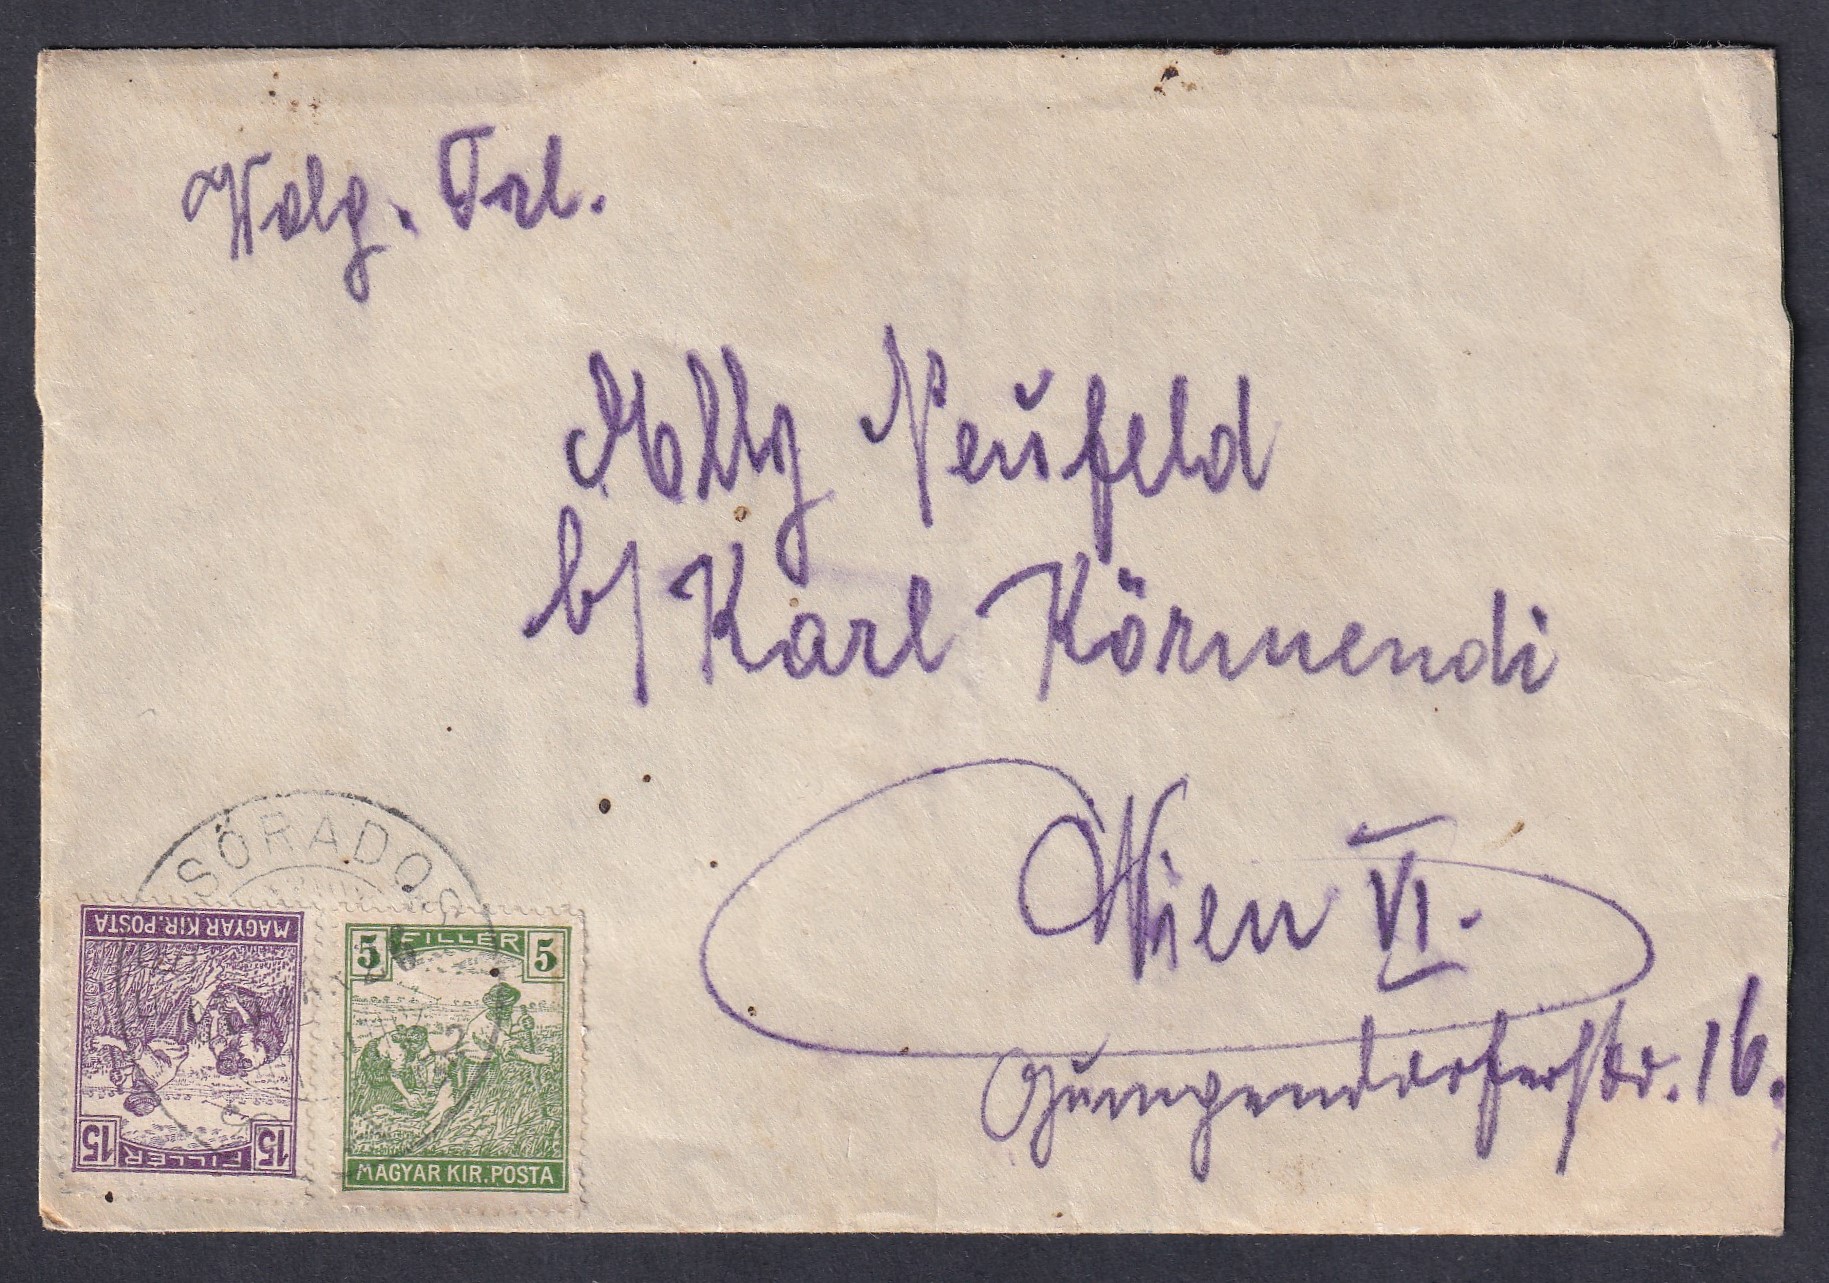 Wolg. Frl.
Molly Neufeld
b/ Karl Körmendi
Wien VI.
Gumpendorferstr. 16.
SÓRADOS
MAGYAR KIR. POSTA
15 FILLÉR 15
5 FILLÉR 5
MAGYAR KIR. POSTA